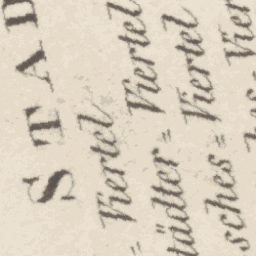 STAD
Viertel
= Viertel
tädter = Viertel
sches = Vier